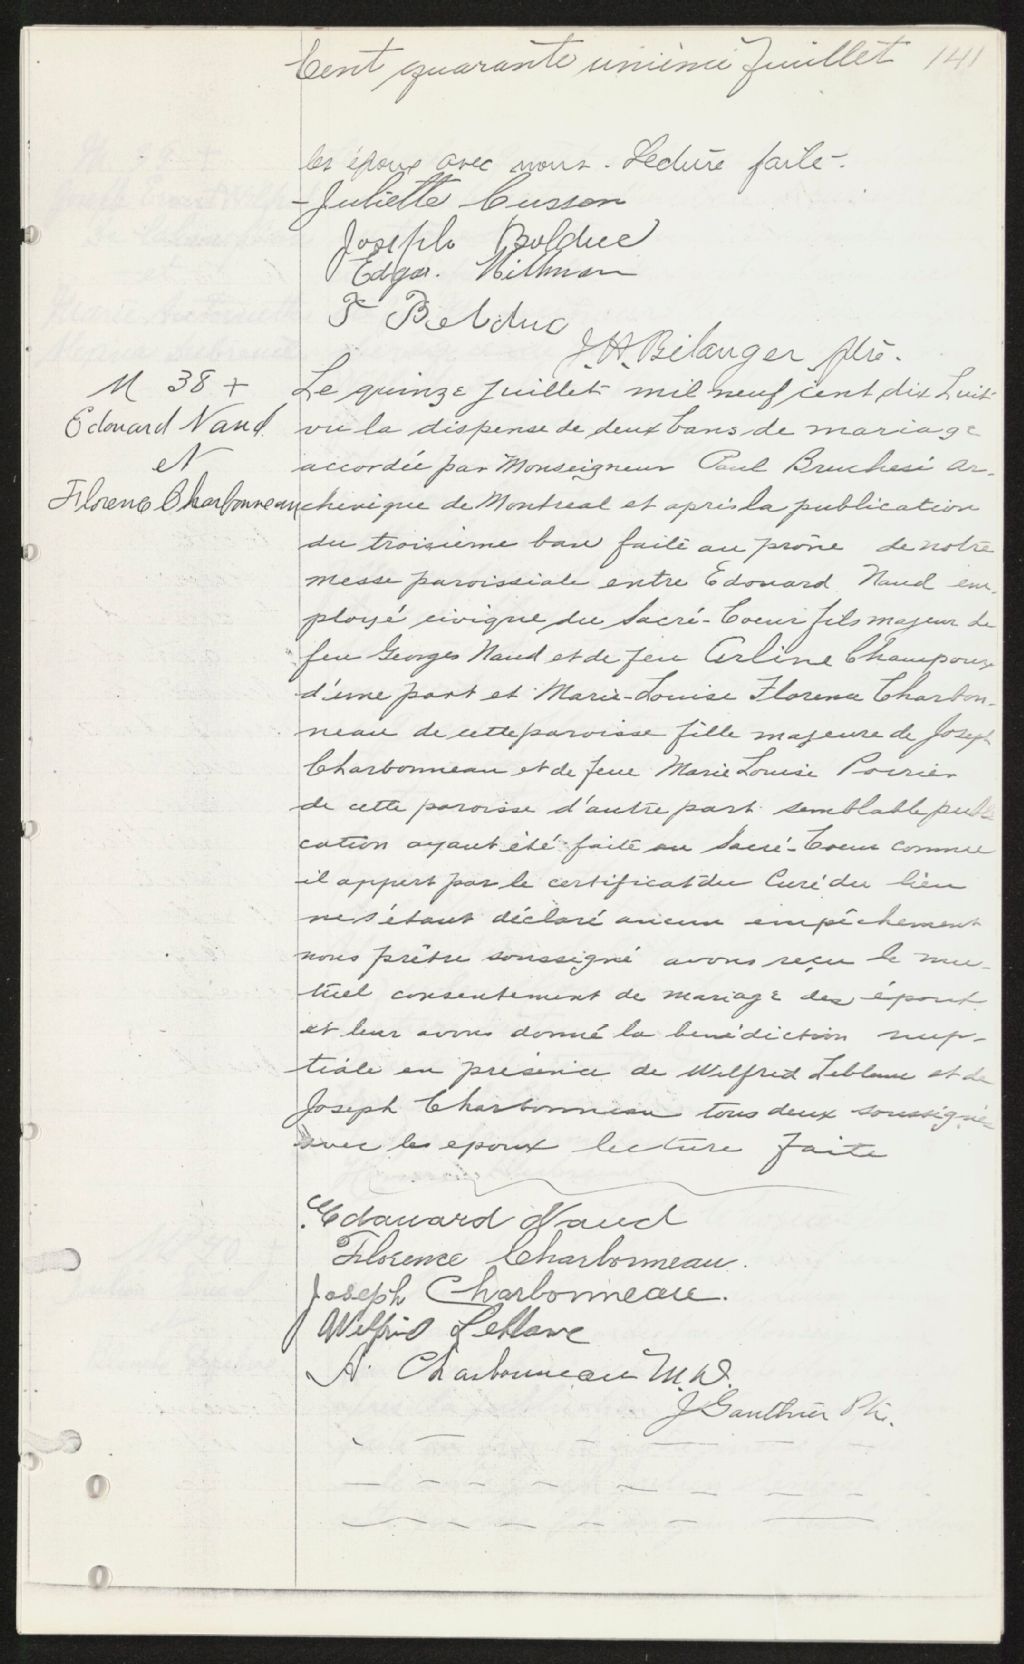 Cent quarante unième Juillet 141
les époux avec nous. Lecture faite.
Juliette Cusson
Joseph Bolduc
Edgar. Hillman
F Bolduc
J.H. Bélanger ptre.
M 38 +
Edouard Naud
et
Florence Charbonneau
Le quinze juillet mil neuf cent dix huit
vu la dispense de deux bans de mariage
accordée par Monseigneur Paul Bruchesi ar-
chevêque de Montreal et après la publication
du troisième ban faite au prône de notre
messe paroissiale entre Edouard Naud em-
ployé civique du Sacré-Coeur fils majeur de
feu Georges Naud et de feu Arline Champoux
d'une part et Marie-Louise Florence Charbon-
neau de cette paroisse fille majeure de Joseph
Charbonneau et de feue Marie Louise Poirier
de cette paroisse d'autre part semblable publi
cation ayant été faite au Sacré-Coeur comme
il appert par le certificat du Curé du lieu
ne s'étant déclaré aucun empêchement
nous prêtre soussigné avons reçu le mu-
tuel consentement de mariage des époux
et leur avons donné la bénédiction nup-
tiale en présence de Wilfrid Leblanc et de
Joseph Charbonneau tous deux soussignés
avec les epoux lecture faite
Edouard Naud
Florence Charbonneau.
Joseph Charbonneau.
Wilfrid Leblanc
A. Charbonneau M.D.
J Gauthier Ptr.